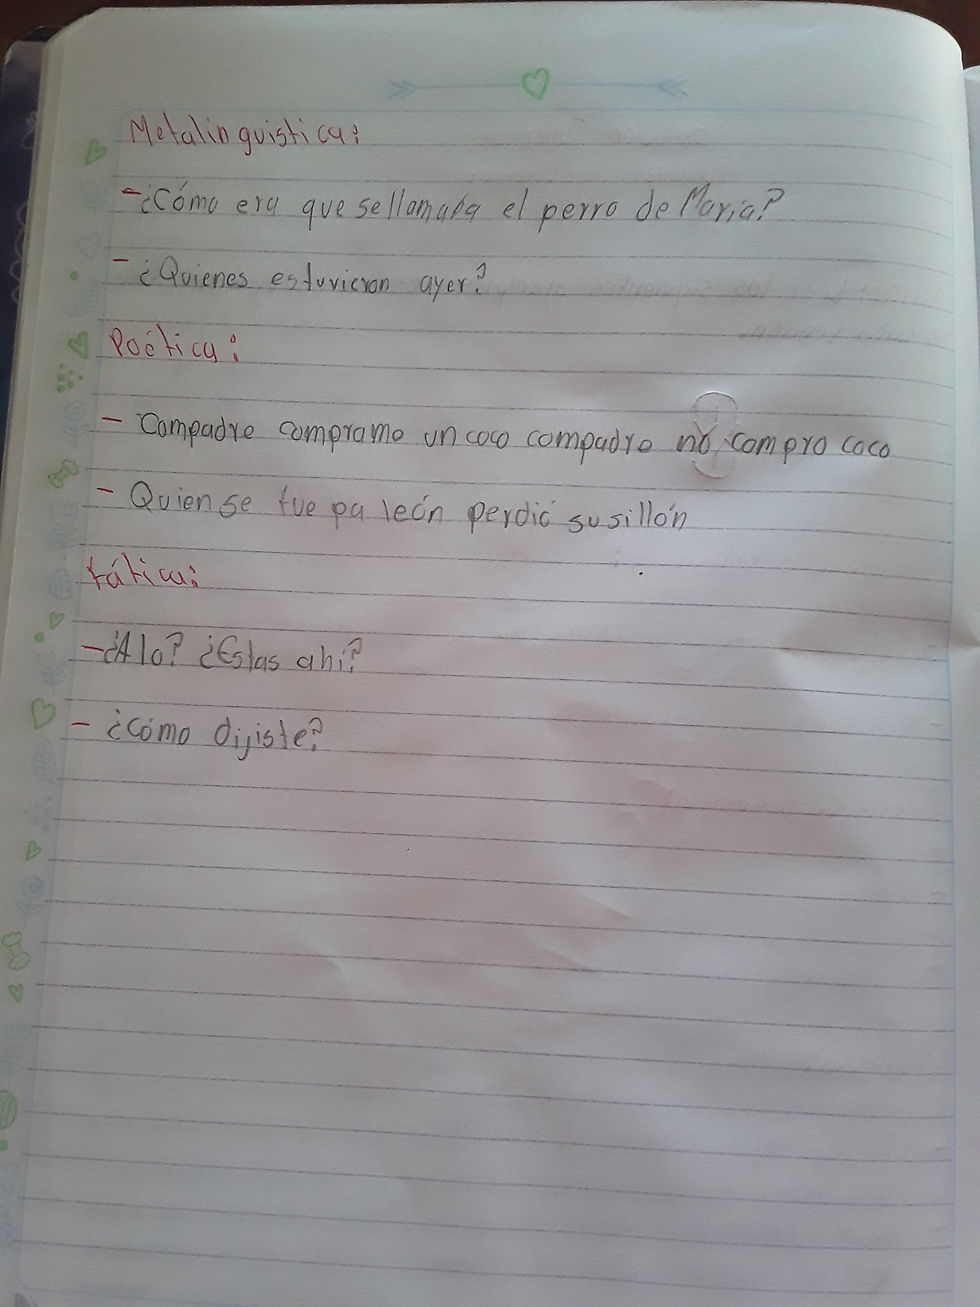 Metalinguistica:
-¿Cómo era que se llamaba el perro de Maria?
- ¿Quienes estuvieron ayer?
Poética:
- Compadre comprame un coco compadre no compro coco
- Quien se fue pa león perdió su sillón
fática:
-¿Alo? ¿Estas ahi?
- ¿Cómo dijiste?